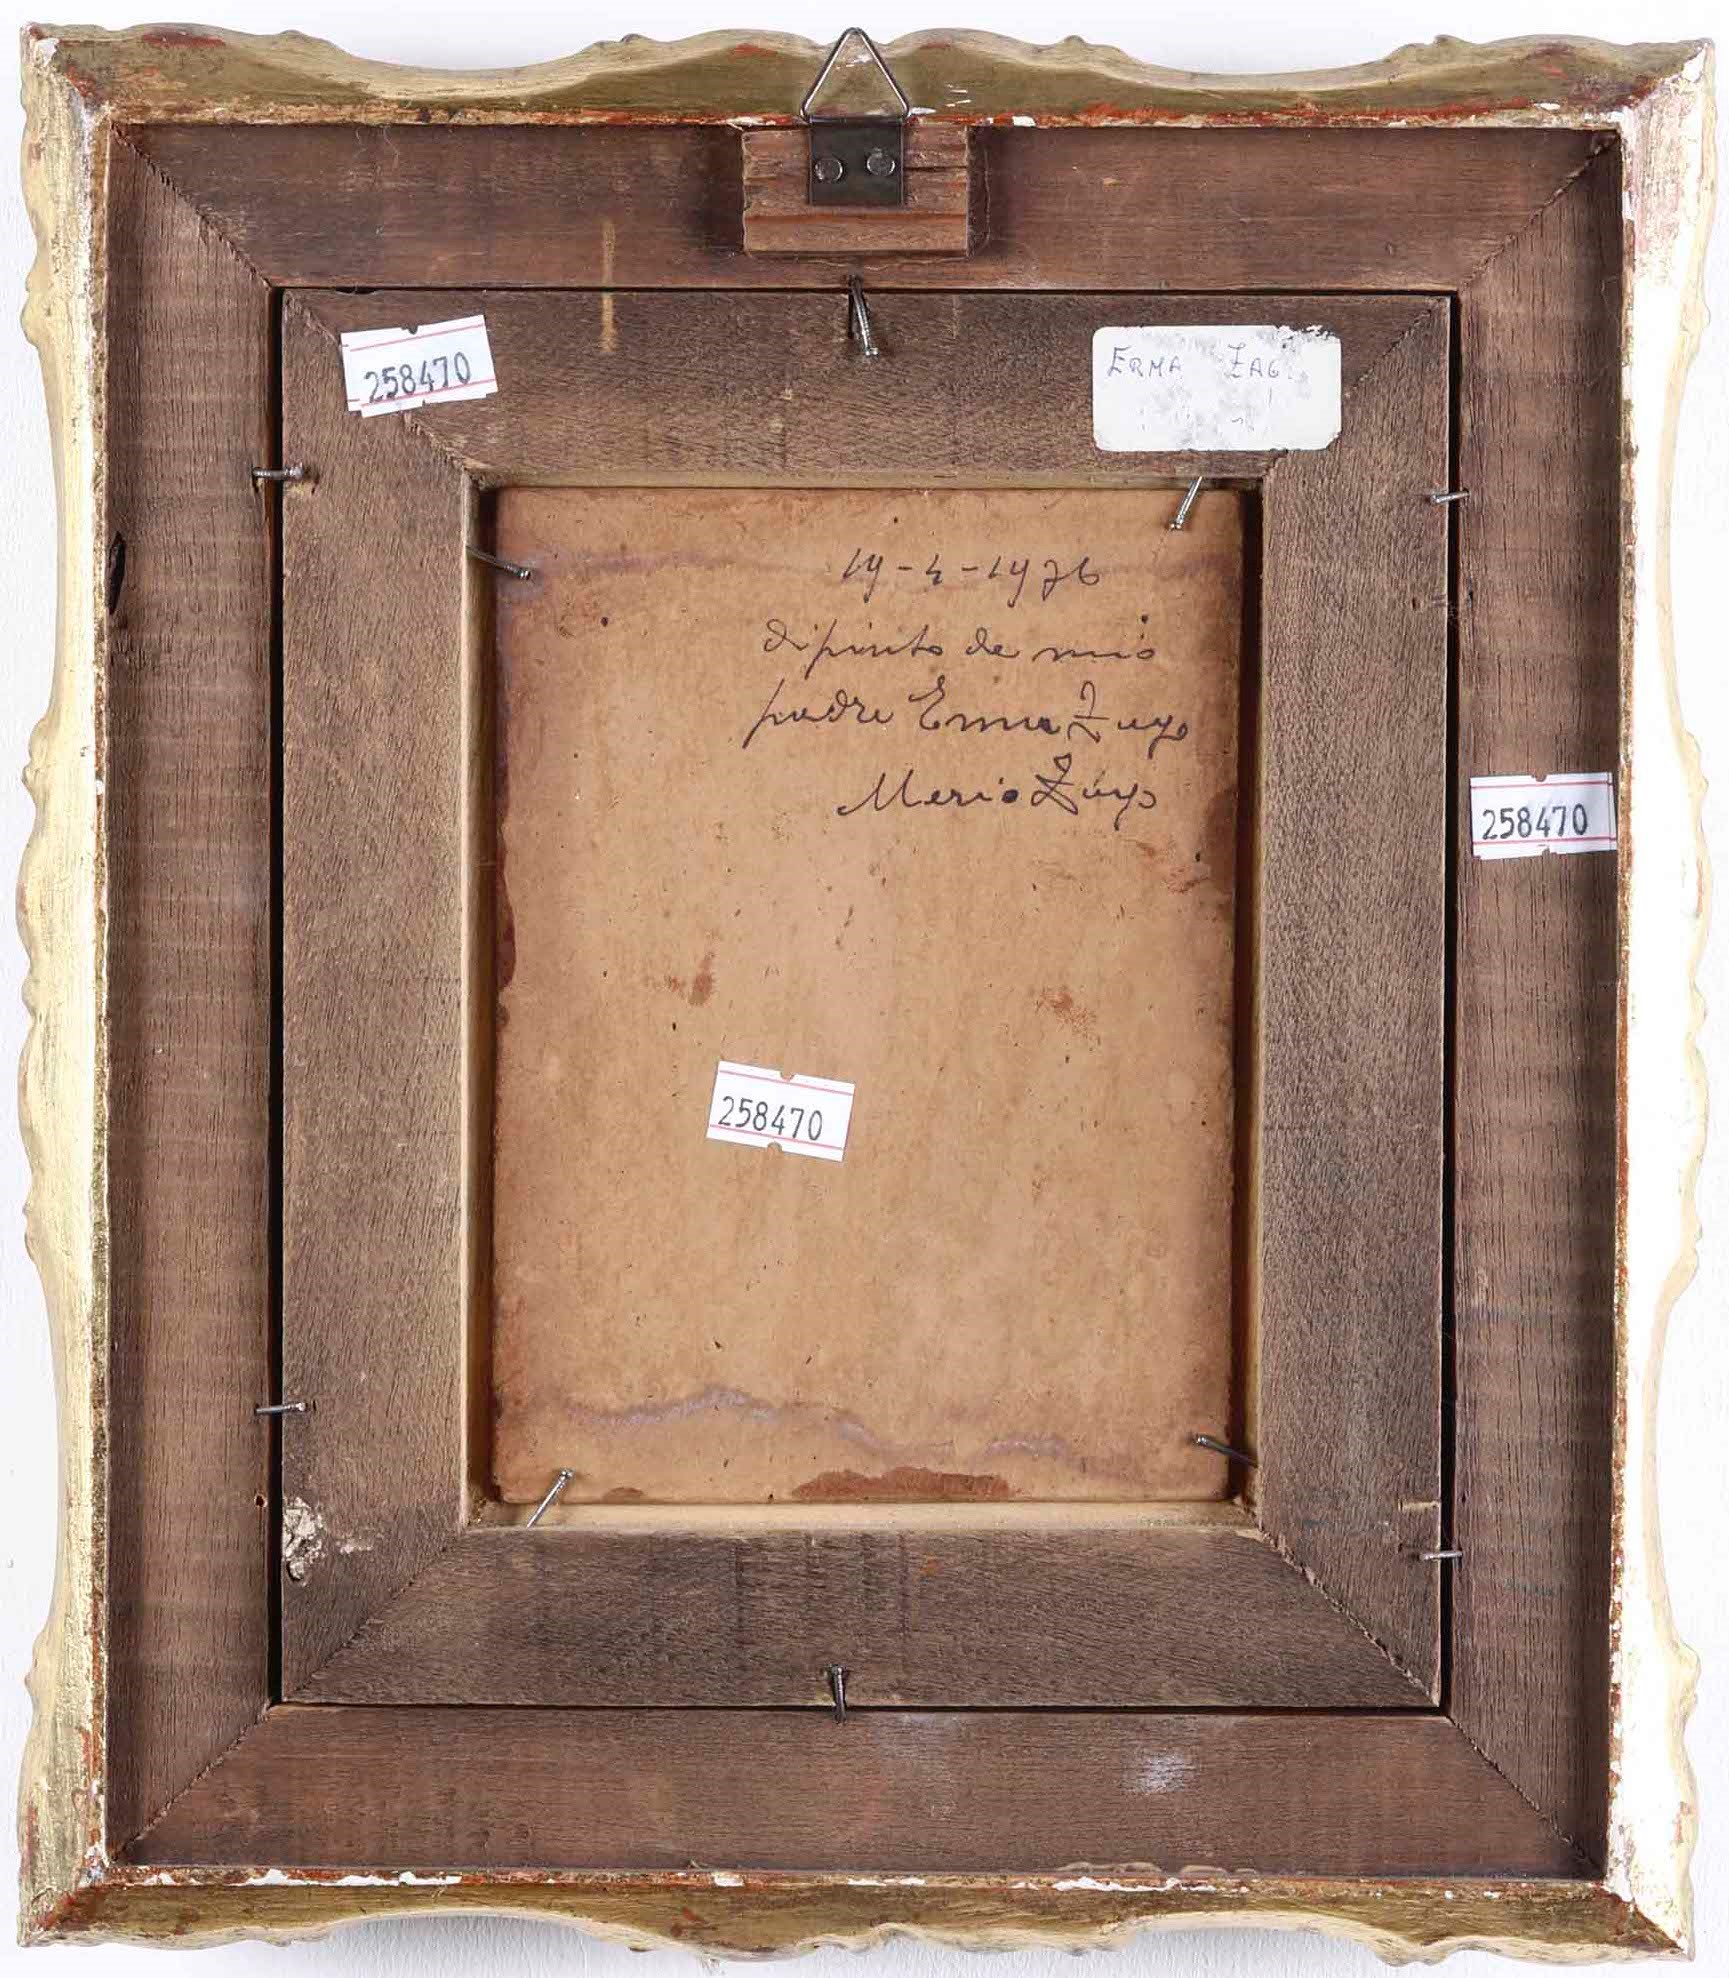 258470
ERMA ZAGO
19-4-1976
dipinto de mio
padre Erma Zago
Merio Zago
258470
258470